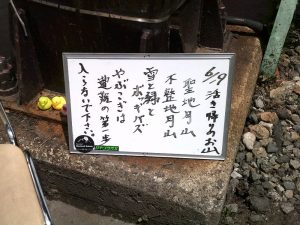 6/9 活き帰るお山
聖地月山
不整地月山
雪と緑と
ポッキバズ
やぶこぎは
遭難の第一歩
入る方いで下さい